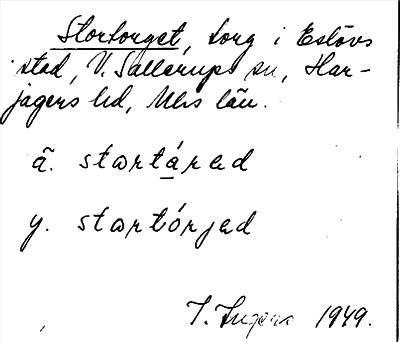 Stortorget, torg i Eslövs
stad, V. Sallerups sn, Har-
jagers hd, Mhs län.
ä. stortáred
y. stortórjed
I. Ingers 1949.